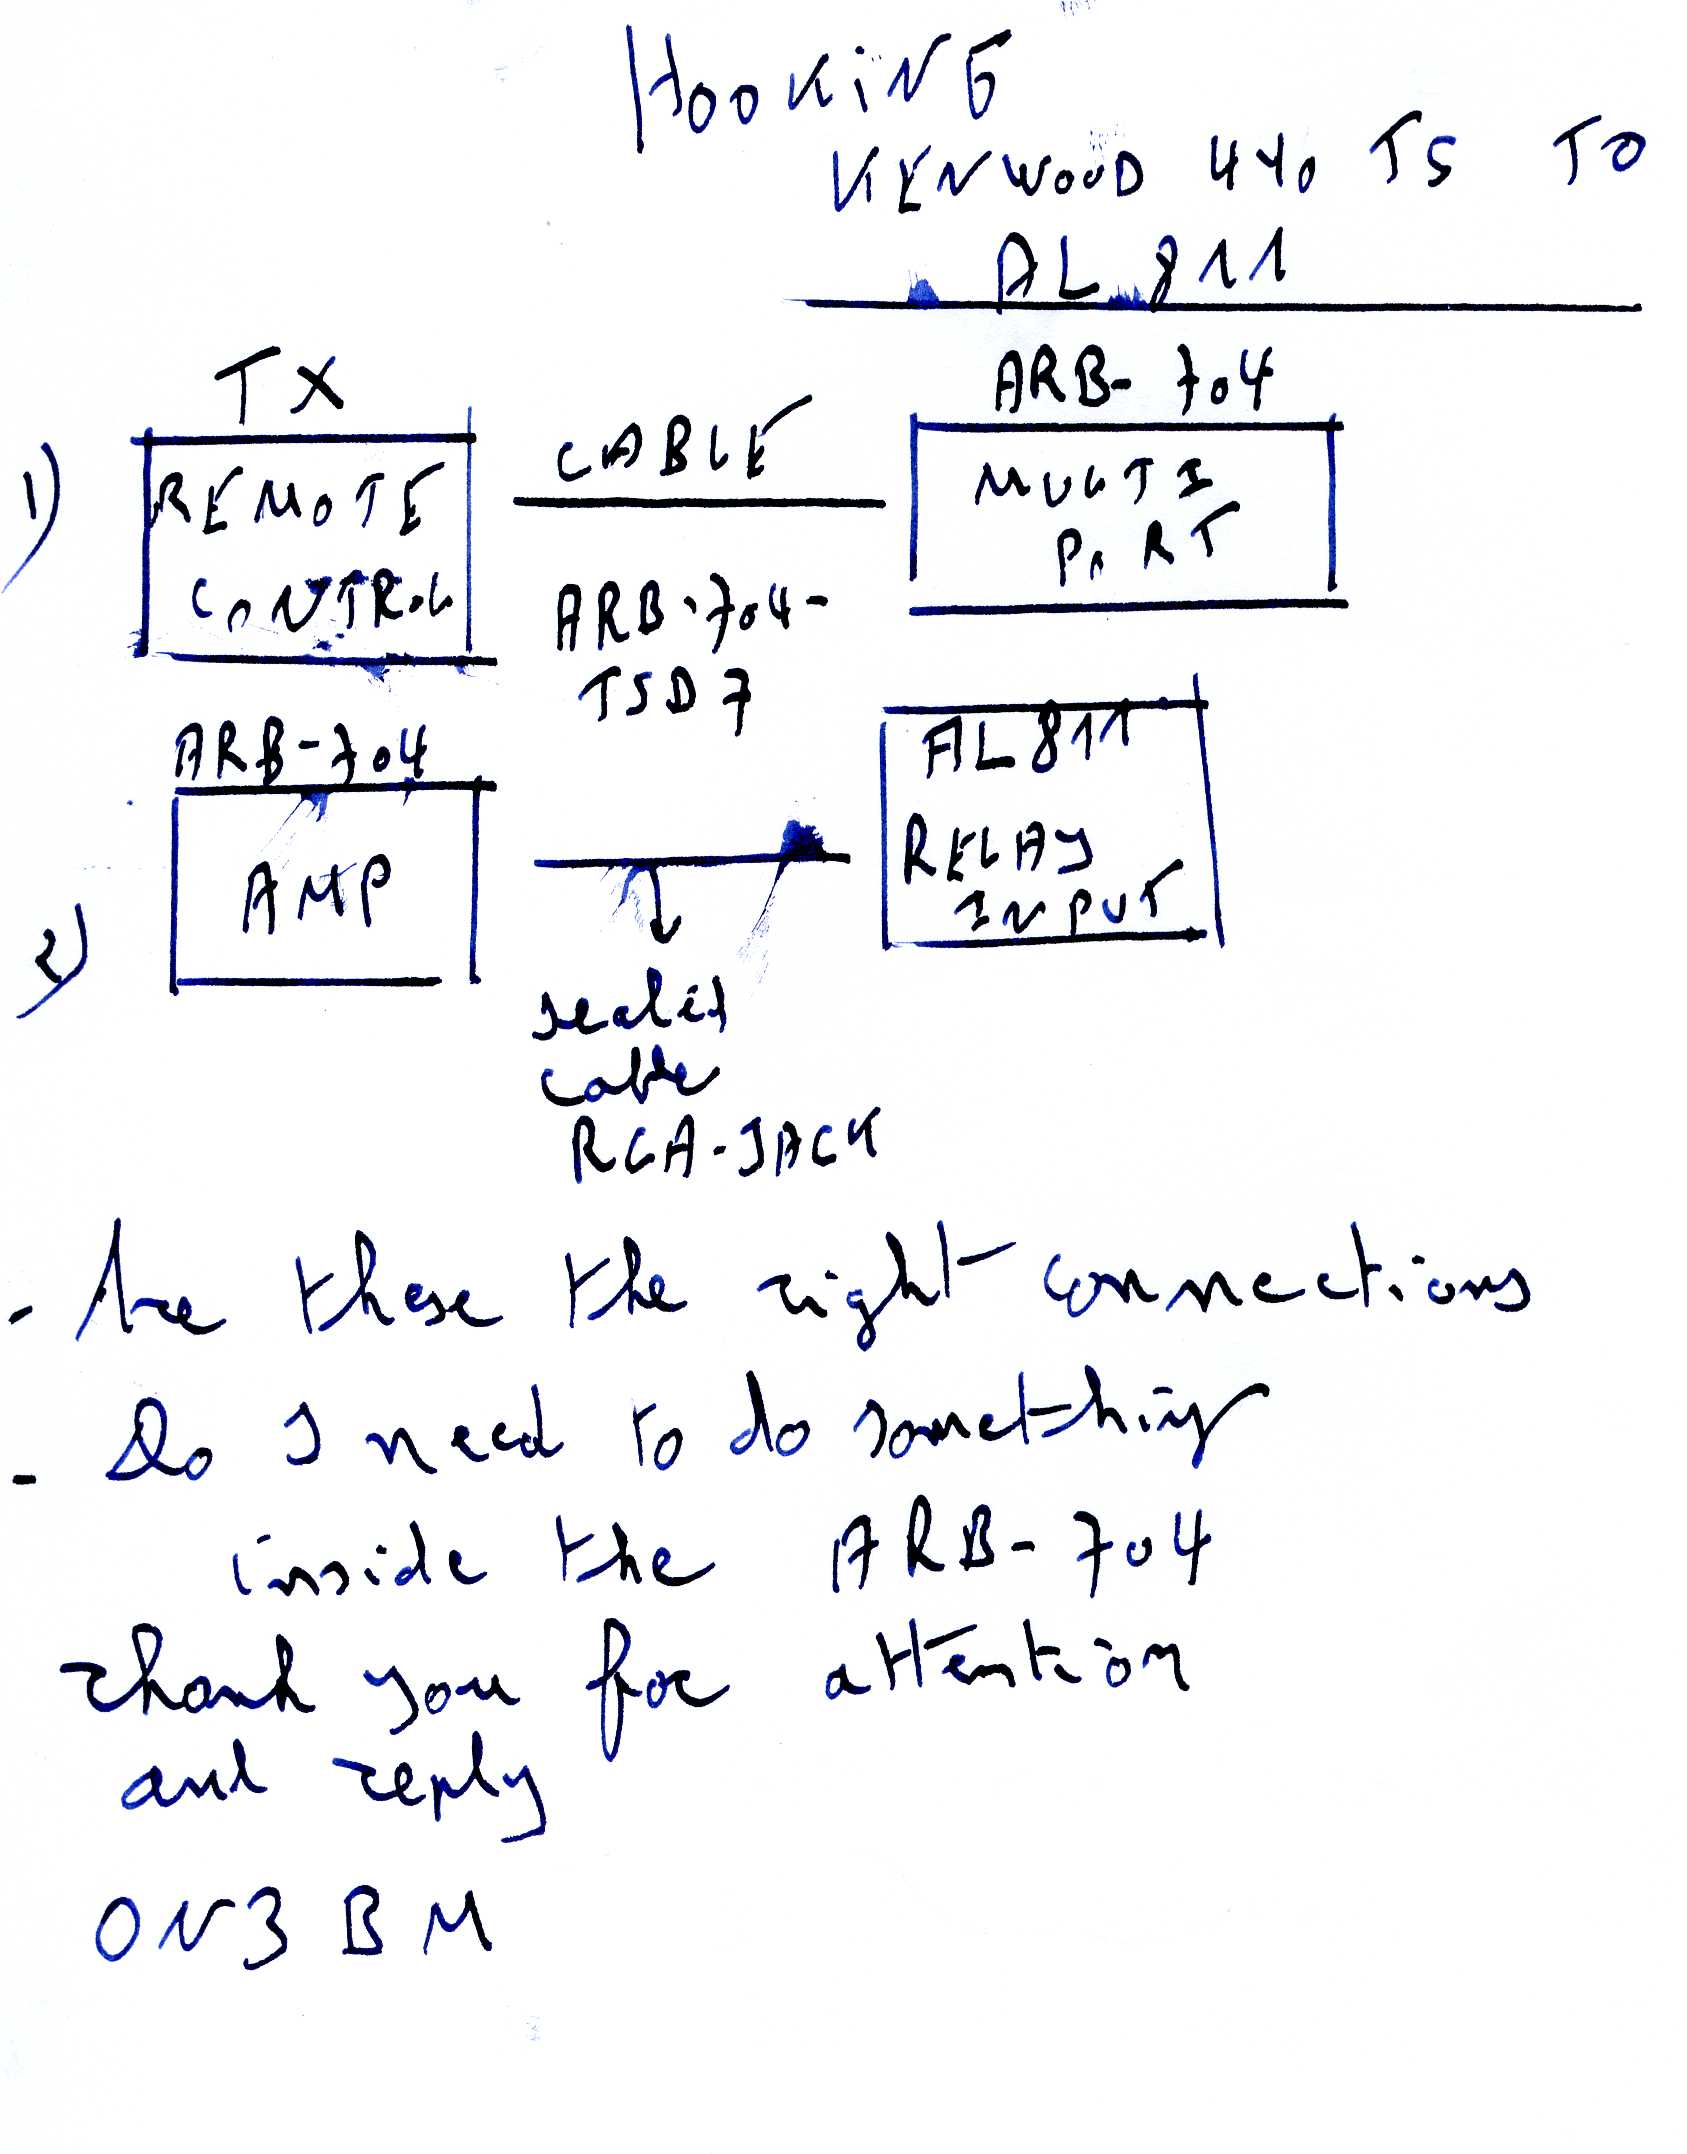 HOOKING
KENWOOD 440 TS TO
AL 811
TX
1) REMOTE
CONTROL
CABLE
ARB-704-
TSD7
ARB-704
MULTI
PORT
ARB-704
2) AMP
AL811
RELAY
INPUT
cable
RCA-JACK
- Are these the right connections
- Do I need to do something
inside the ARB-704
thank you for attention
and reply
ON3BM